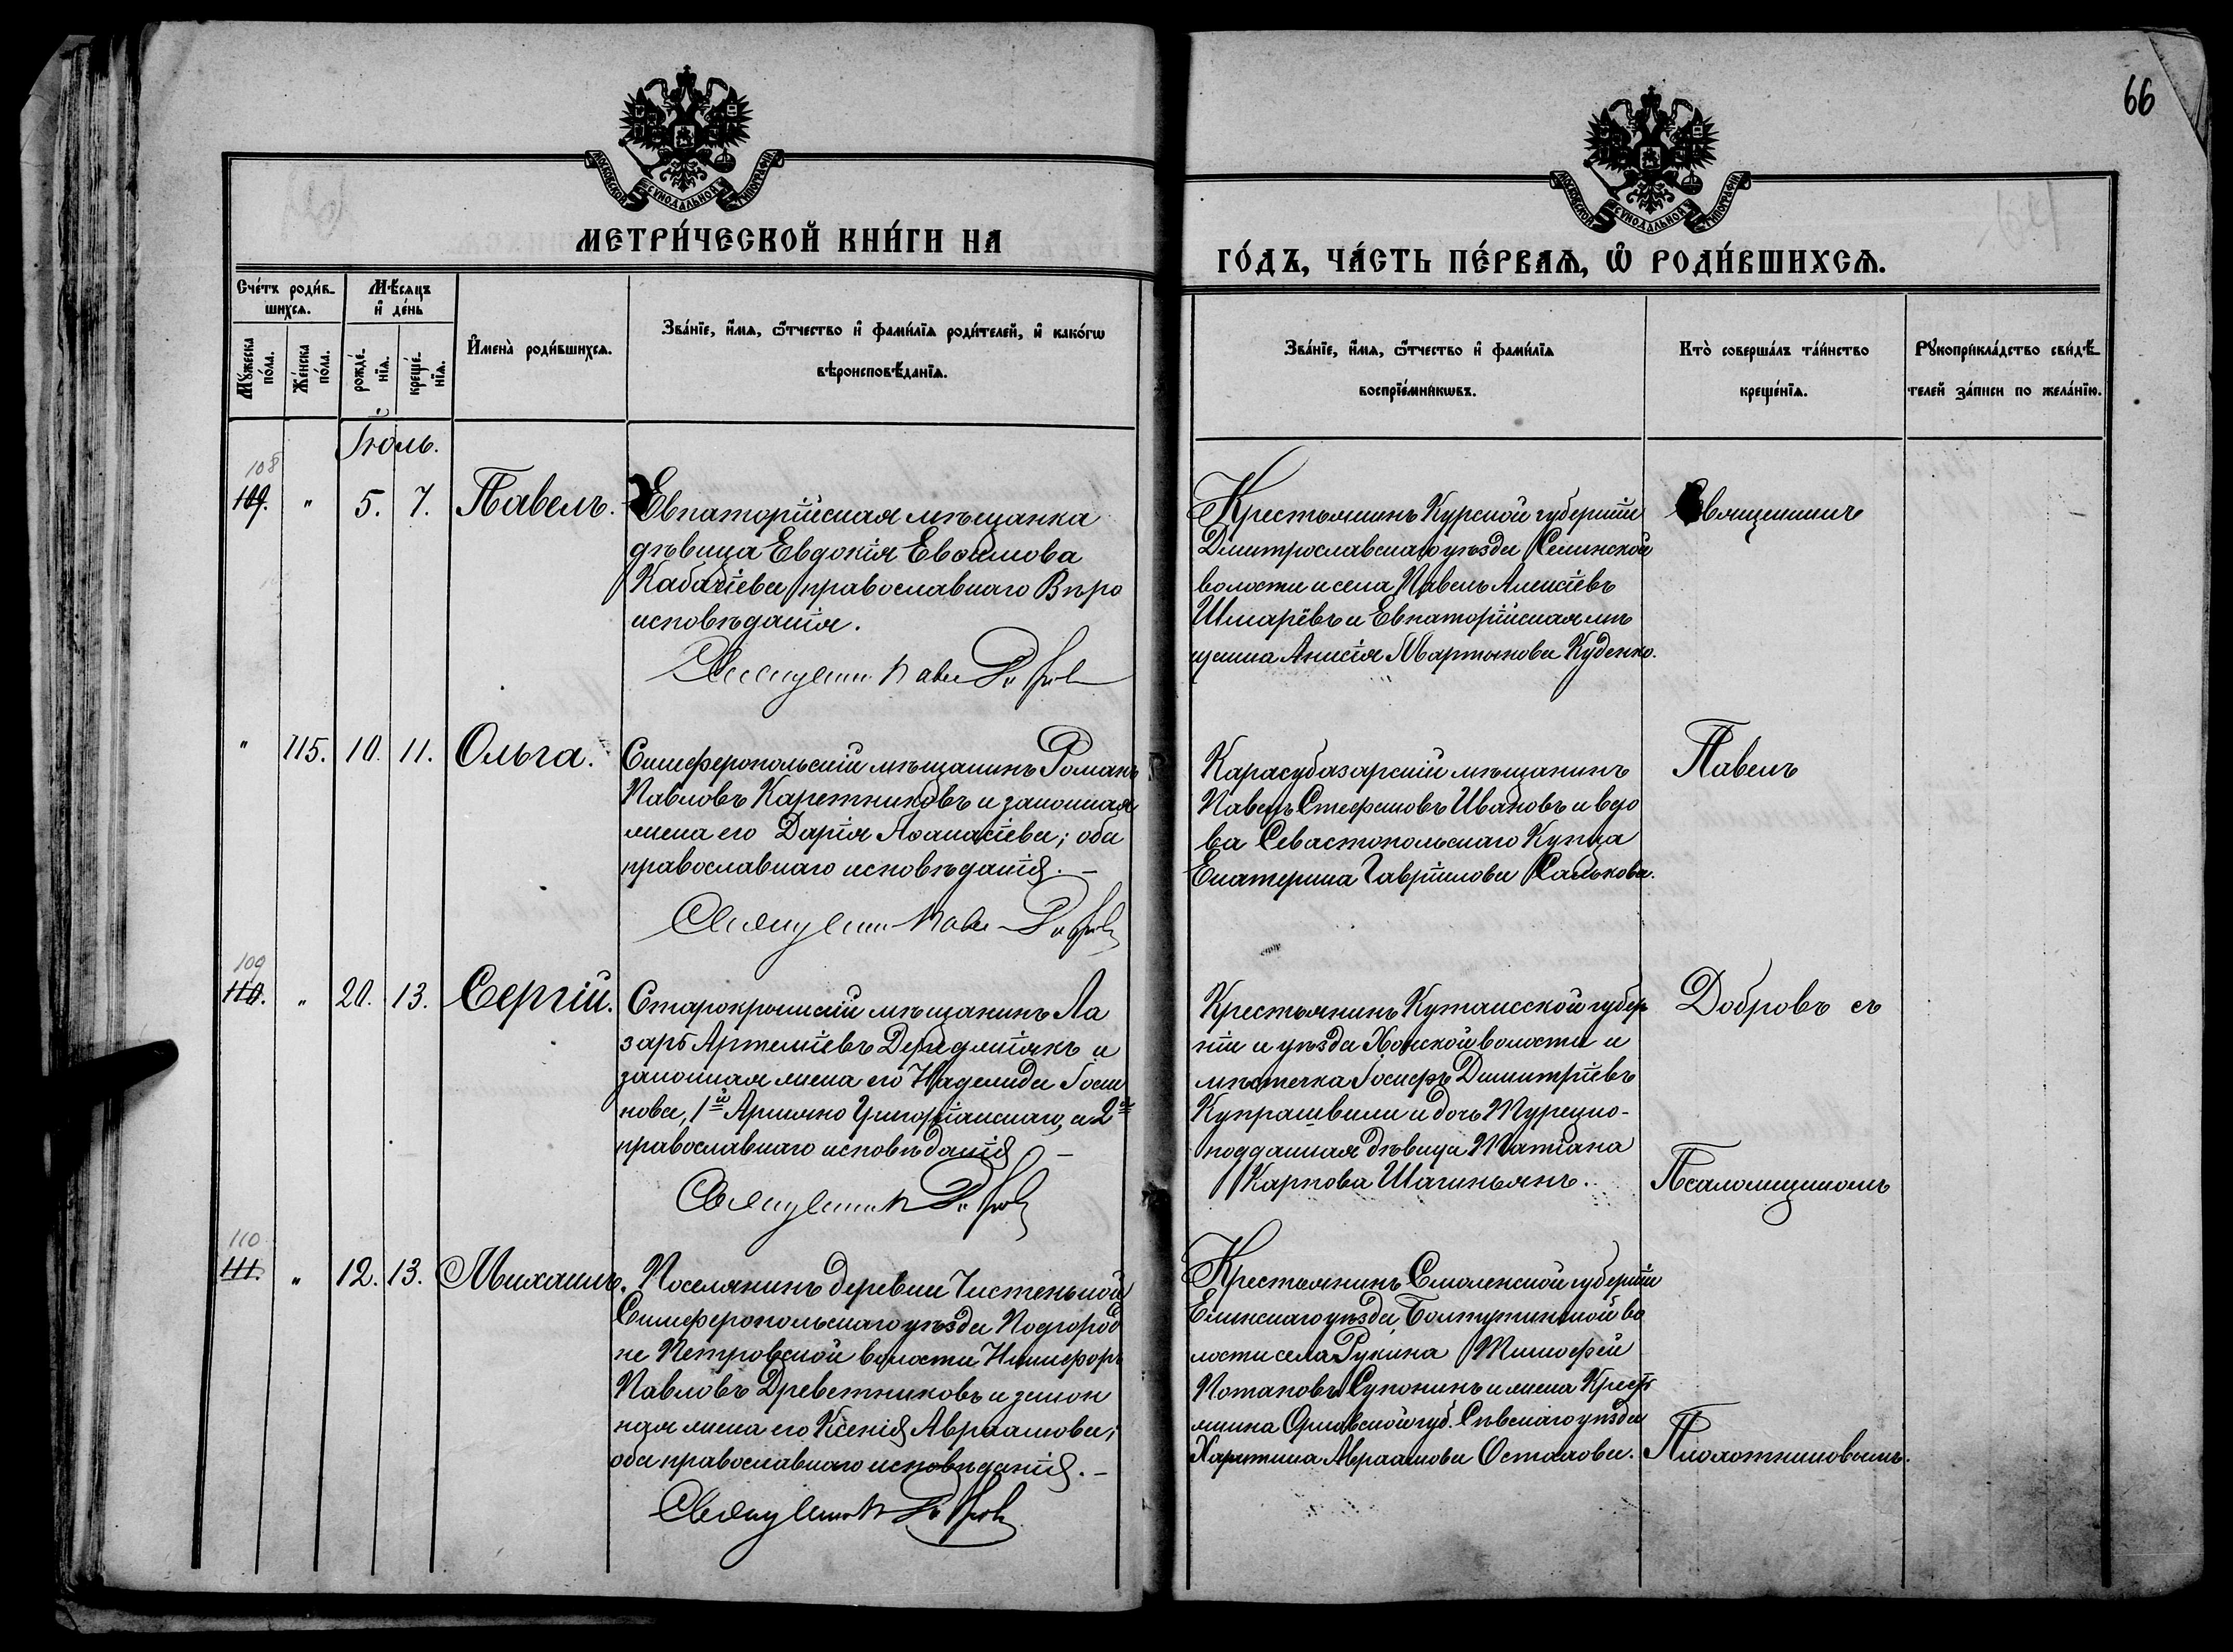 66
МОСКОВСКОЙ СѴНОДАЛЬНОЙ ТИПОГРАФІИ
МОСКОВСКОЙ СѴНОДАЛЬНОЙ ТИПОГРАФІИ
МЕТРИ́ЧЕСКОЙ КНИ́ГИ НА
ГО́ДЪ, ЧА́СТЬ ПЕ́РВАѦ, Ѡ҆ РОДИ́ВШИХСѦ.
Сче́тъ роди́в-
шихсѧ.
Мꙋ́жеска по́ла.
Же́нска по́ла.
Мѣ́сѧцъ
и҆ де́нь
рожде́-
нїѧ.
креще́-
нїѧ.
И҆мена̀ роди́вшихсѧ.
Зва́нїе, и҆́мѧ, ѻ҆́тчество и҆ фами́лїѧ роди́телей, и҆ како́гѡ
вѣроисповѣ́данїѧ.
Зва́нїе, и҆́мѧ, ѻ҆́тчество и҆ фами́лїѧ
воспрїе́мникѡвъ.
Кто̀ соверша́лъ та́инство
креще́нїѧ.
Рꙋкоприкла́дство свидѣ́-
телей за́писи по жела́нїю.
Іюль.
108
109. " 5. 7. Павелъ.
Евпаторійская мѣщанка
дѣвица Евдокія Евѳимова
Кабачіева, православнаго Вѣро
исповѣданія.
Священникъ Павелъ Добровъ
Крестьянинъ Курской губерніи
Дмитрославскаго уѣзда Селинской
волости и села Павелъ Алексіевъ
Шмарёвъ и Евпаторійская мѣ
щанка Анисія Мартынова Куденко.
Священникъ
" 115. 10. 11. Ольга.
Симферопольскій мѣщанинъ Романъ
Павловъ Каретниковъ и законная
жена его Дарія Аѳанасіева; оба
православнаго исповѣданія. –
Священникъ Павелъ Добровъ
Карасубазарскій мѣщанинъ
Павелъ Стефановъ Ивановъ и вдо
ва Севастопольскаго Купца
Екатерина Гавріилова Салькова.
Павелъ
109
110. " 20. 13. Сергій.
Старокрымскій мѣщанинъ Ла
зарь Артеміевъ и
законная жена его Надежда Іоси
нова, 1й Армяно Григоріанскаго, а 2я
православнаго исповѣданія –
Священникъ П Добровъ
Крестьянинъ Кутаисской губер
ніи и уѣзда Хонской волости и
мѣстечка Іосифъ Димитріевъ
Купрашвили и дочь Турецко-
подданная дѣвица Татіана
Карпова Шагиньянъ.
Добровъ съ
Псаломщикомъ
110
111. " 12. 13. Михаилъ.
Поселянинъ деревни Чистенькой
Симферопольскаго уѣзда Подгород
не Петровской волости Никифоръ
Павловъ Древетниковъ и закон
ная жена его Ксенія Авраамова;
оба православнаго исповѣданія. –
Священникъ П Добровъ
Крестьянинъ Смоленской губерніи
Елинскаго уѣзда, Болтутинской во
лости села Рукина Тимофей
Потаповъ Супонинъ и жена Крест
янина Орловской губ. Сѣвскаго уѣзда
Харитина Авраамова Осталова.
Плохотниковымъ.